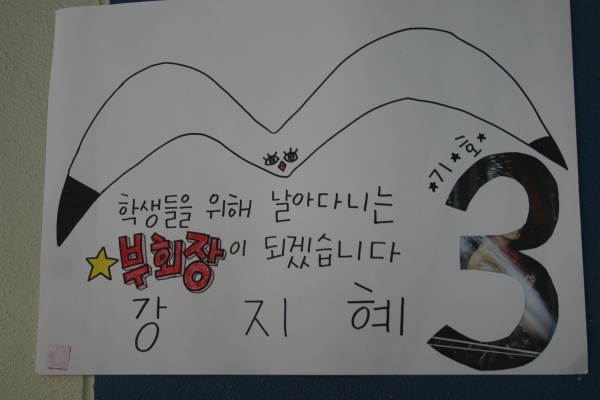 기호
3
학생들을 위해 날아다니는
부회장이 되겠습니다
강지혜